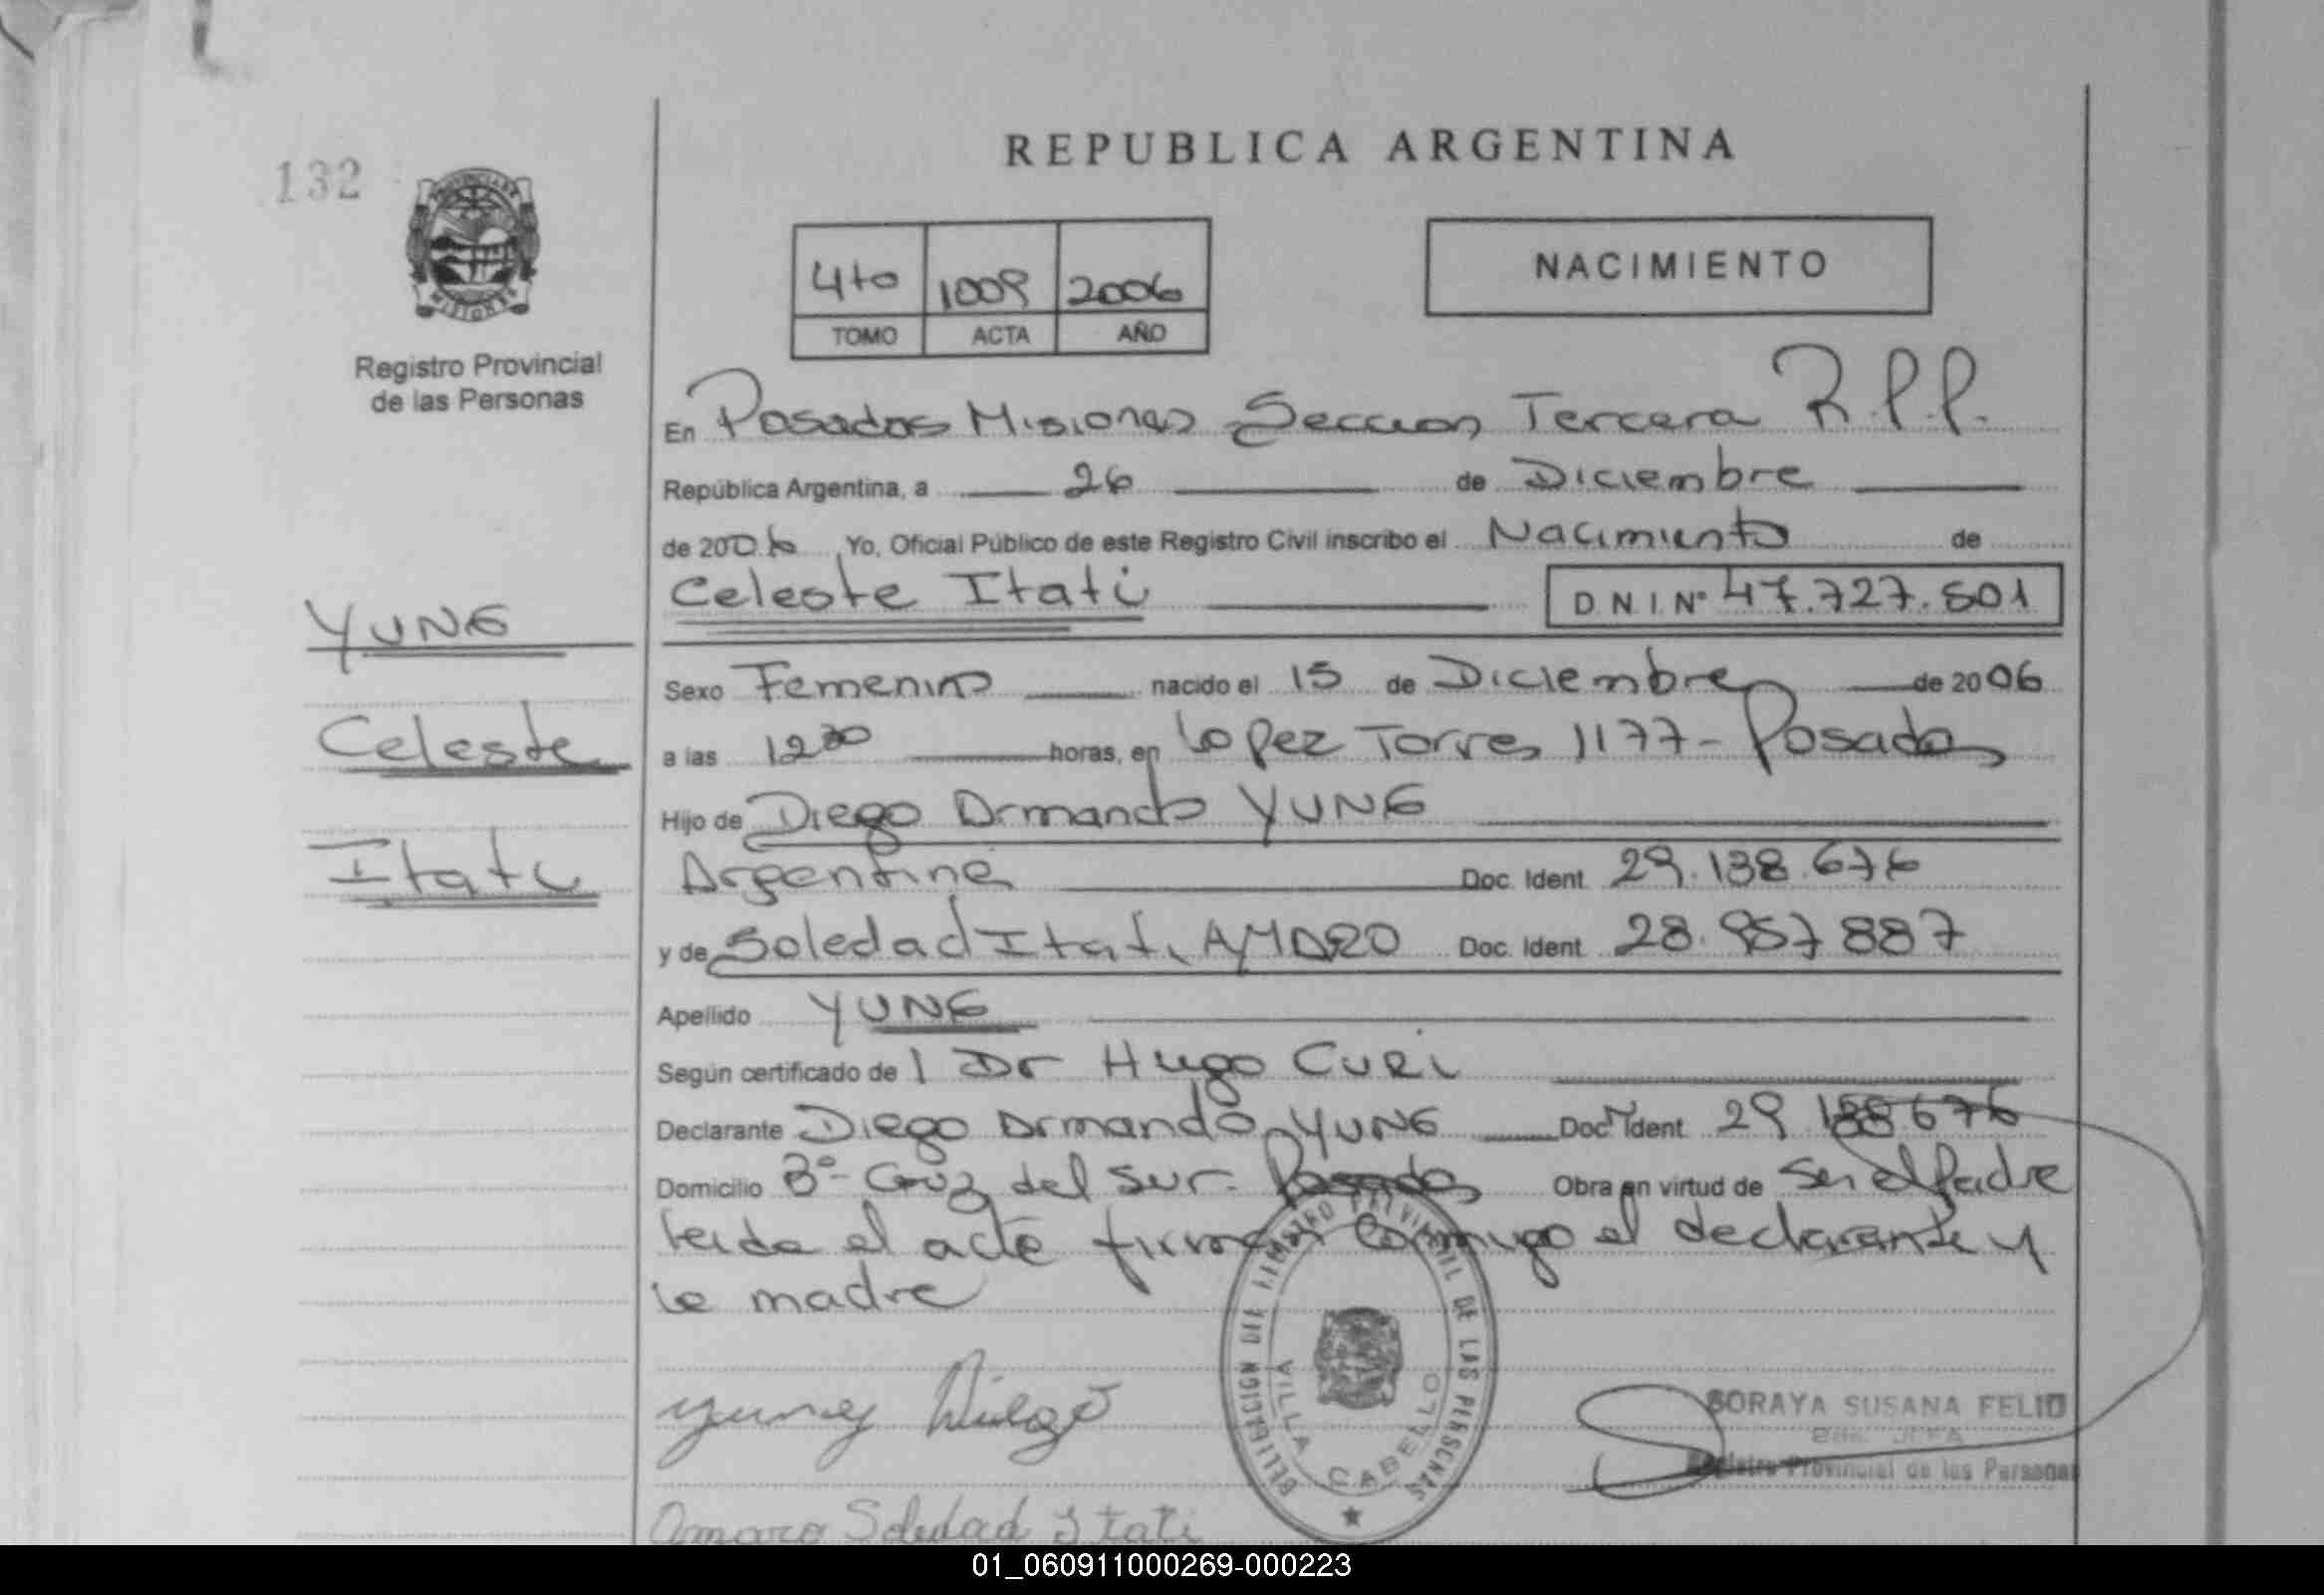 REPUBLICA ARGENTINA
132
4to 1009 2006
TOMO ACTA AÑO
NACIMIENTO
Registro Provincial
de las Personas
En Posadas Misiones Seccion Tercera R.P.P.
República Argentina, a 26 de Diciembre
de 2006 Yo, Oficial Público de este Registro Civil inscribo el Nacimiento de
Celeste Itati D.N.I. Nº 47.727.501
YUNG
Celeste
Itati
Sexo Femenino nacido el 15 de Diciembre de 2006
a las 12 horas, en Lopez Torres 1177 - Posadas
Hijo de Diego Armando YUNG
Argentina Doc. Ident. 29.138.676
y de Soledad Itati AMARO Doc. Ident. 28.957887
Apellido YUNG
Según certificado de 1 Dr Hugo CURI
Declarante Diego Armando YUNG Doc. Ident. 29
Domicilio Bº- Cruz del Sur - Posadas Obra en virtud de Ser el Padre
leida el acta firman conmigo el declarante y
la madre
Yung Diego
DELEGACION DEL REGISTRO PROVINCIAL DE LAS PERSONAS
VILLA CABELLO
SORAYA SUSANA FELIU
Registro Provincial de las Personas
Amaro Soledad Itati
01_060911000269-000223